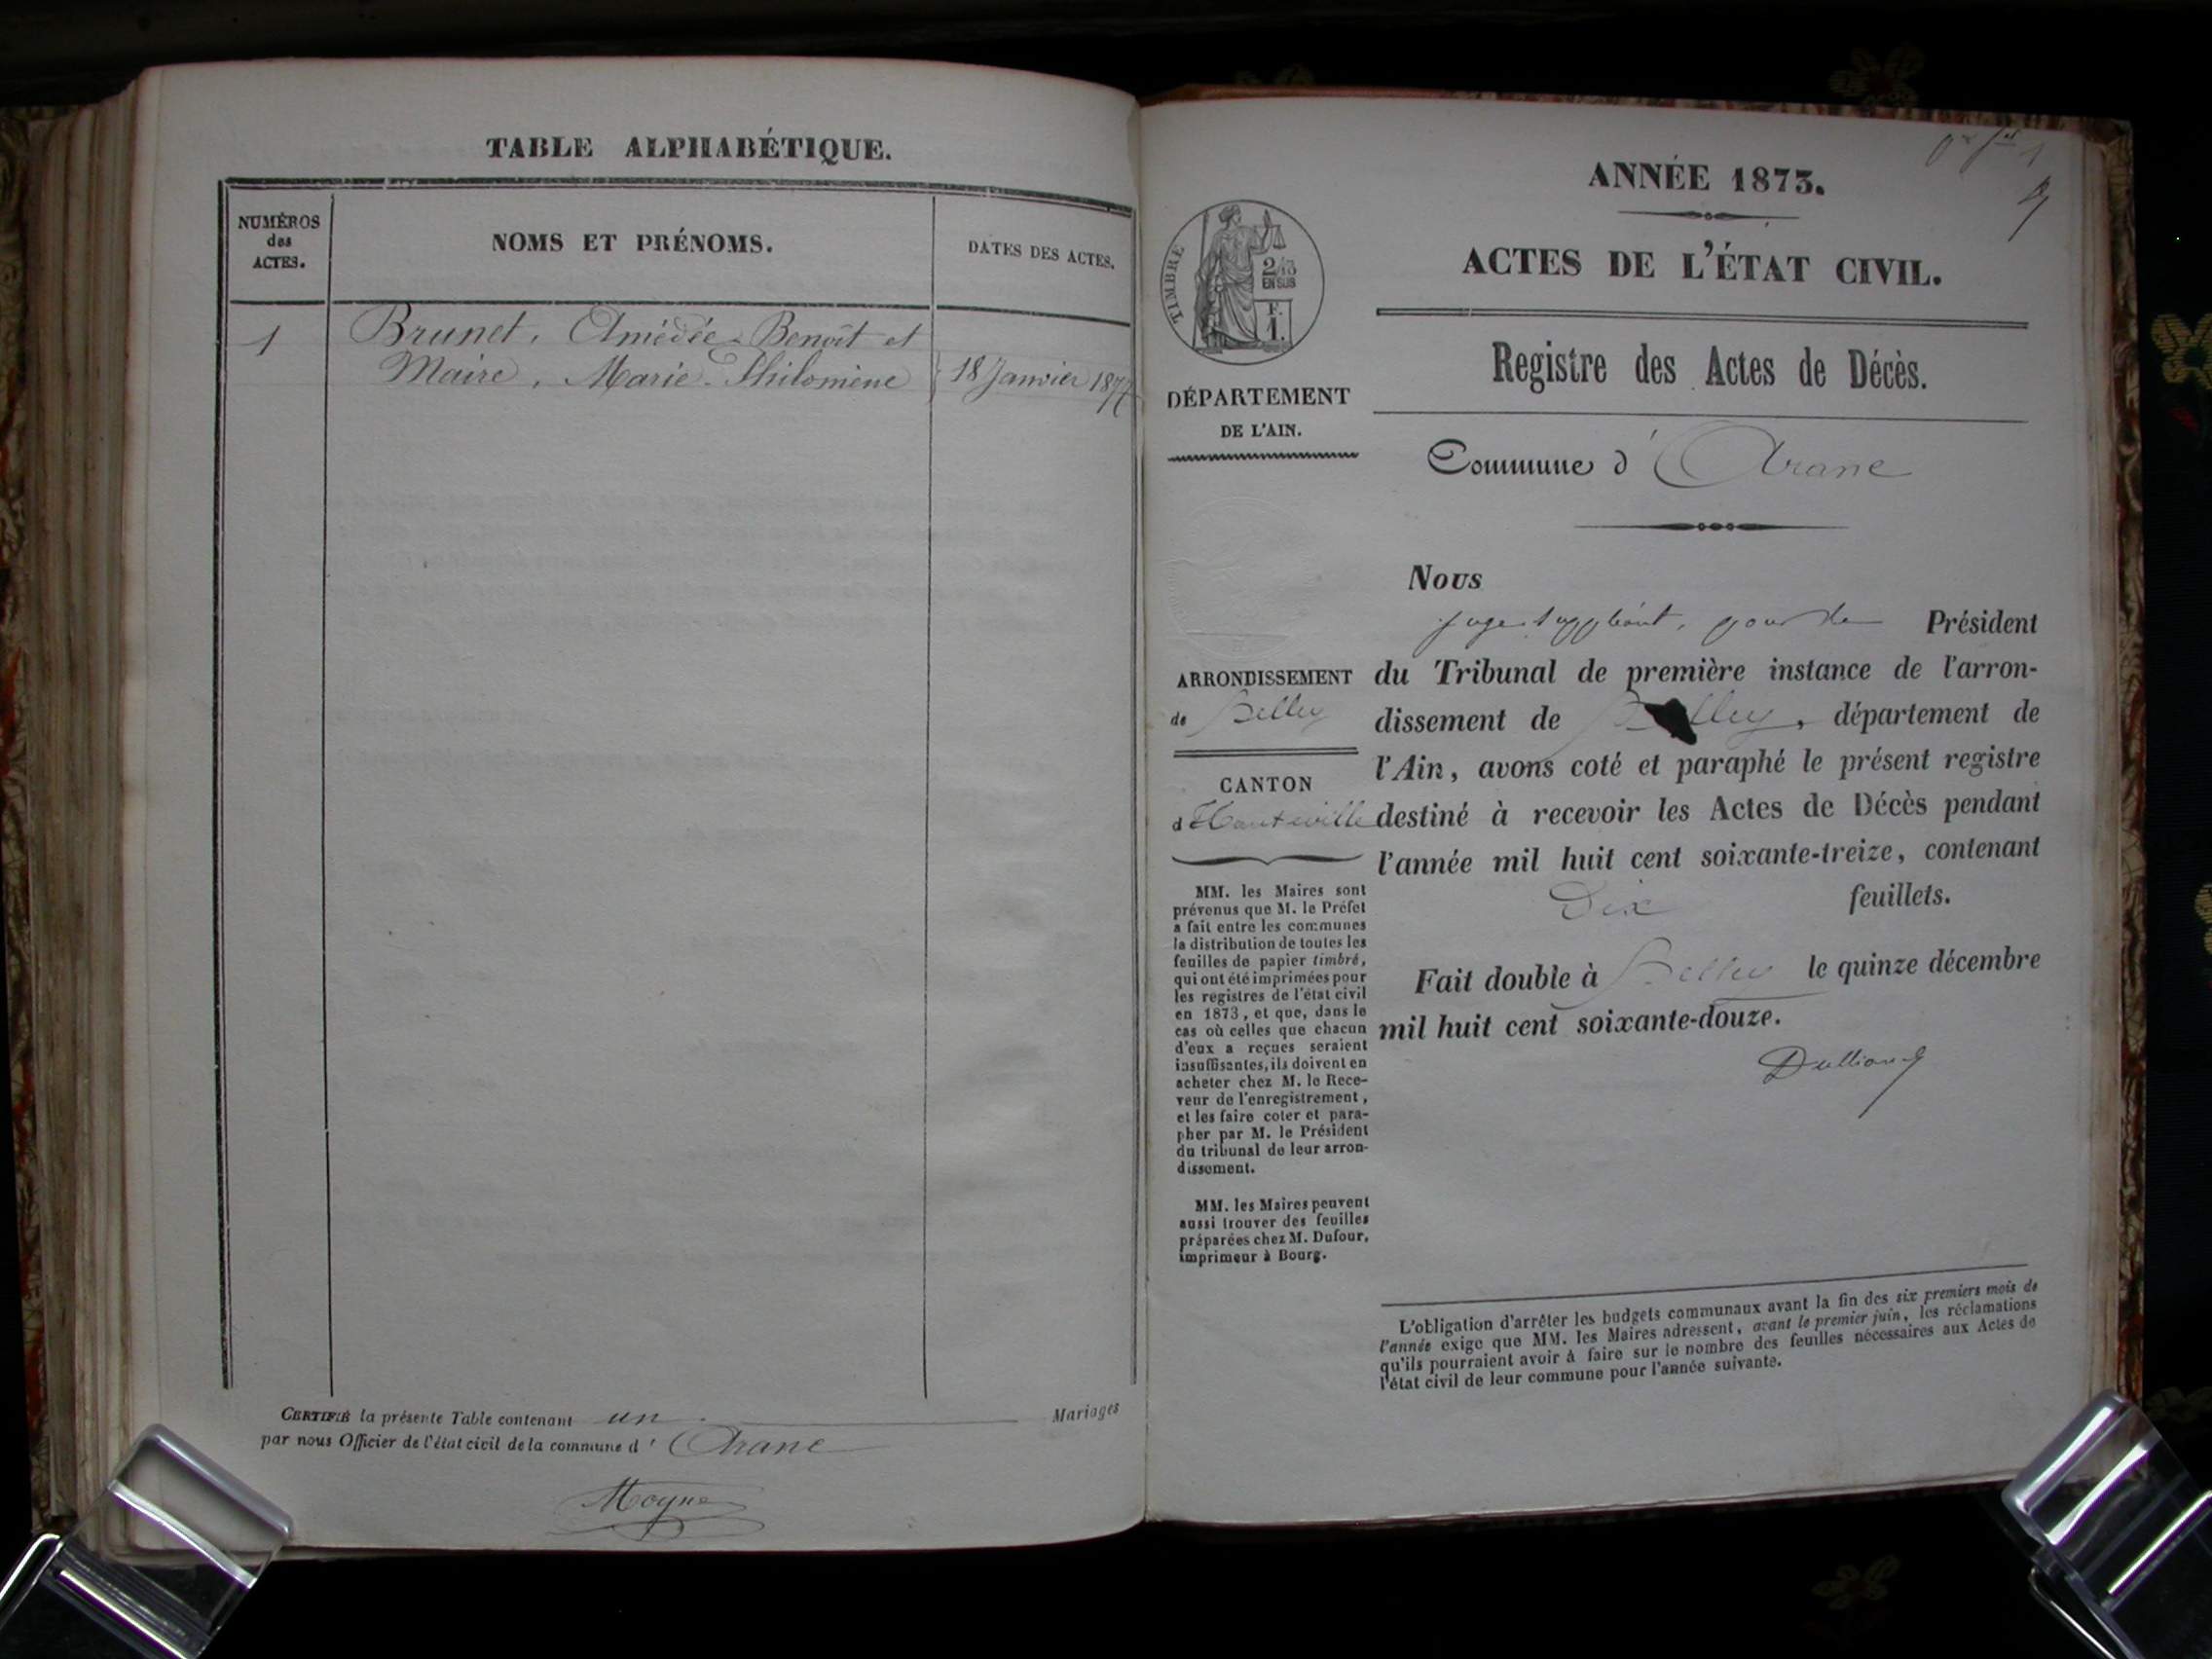 TABLE ALPHABÉTIQUE.
NUMÉROS
des
ACTES.
NOMS ET PRÉNOMS.
DATES DES ACTES.
1
Brunet, Amédée-Benoît et
Maire, Marie-Philomène
18 Janvier
CERTIFIÉ la présente Table contenant un Mariages
par nous Officier de l'état civil de la commune d' Arane
Moyne
1
ANNÉE 1873.
ACTES DE L'ÉTAT CIVIL.
Registre des Actes de Décès.
Commune d' Arane
TIMBRE
2/10
EN SUS
F.
1.
DÉPARTEMENT
DE L'AIN.
ARRONDISSEMENT
de Belley
CANTON
d'Hauteville
MM. les Maires sont
prévenus que M. le Préfet
a fait entre les communes
la distribution de toutes les
feuilles de papier timbré,
qui ont été imprimées pour
les registres de l'état civil
en 1873, et que, dans le
cas où celles que chacun
d'eux a reçues seraient
insuffisantes, ils doivent en
acheter chez M. le Rece-
veur de l'enregistrement,
et les faire coter et para-
pher par M. le Président
du tribunal de leur arron-
dissement.
MM. les Maires peuvent
aussi trouver des feuilles
préparées chez M. Dufour,
imprimeur à Bourg.
Nous
juge suppléant, pour le Président
du Tribunal de première instance de l'arron-
dissement de Belley, département de
l'Ain, avons coté et paraphé le présent registre
destiné à recevoir les Actes de Décès pendant
l'année mil huit cent soixante-treize, contenant
Dix feuillets.
Fait double à Belley le quinze décembre
mil huit cent soixante-douze.
L'obligation d'arrêter les budgets communaux avant la fin des six premiers mois de
l'année exige que MM. les Maires adressent, avant le premier juin, les réclamations
qu'ils pourraient avoir à faire sur le nombre des feuilles nécessaires aux Actes de
l'état civil de leur commune pour l'année suivante.